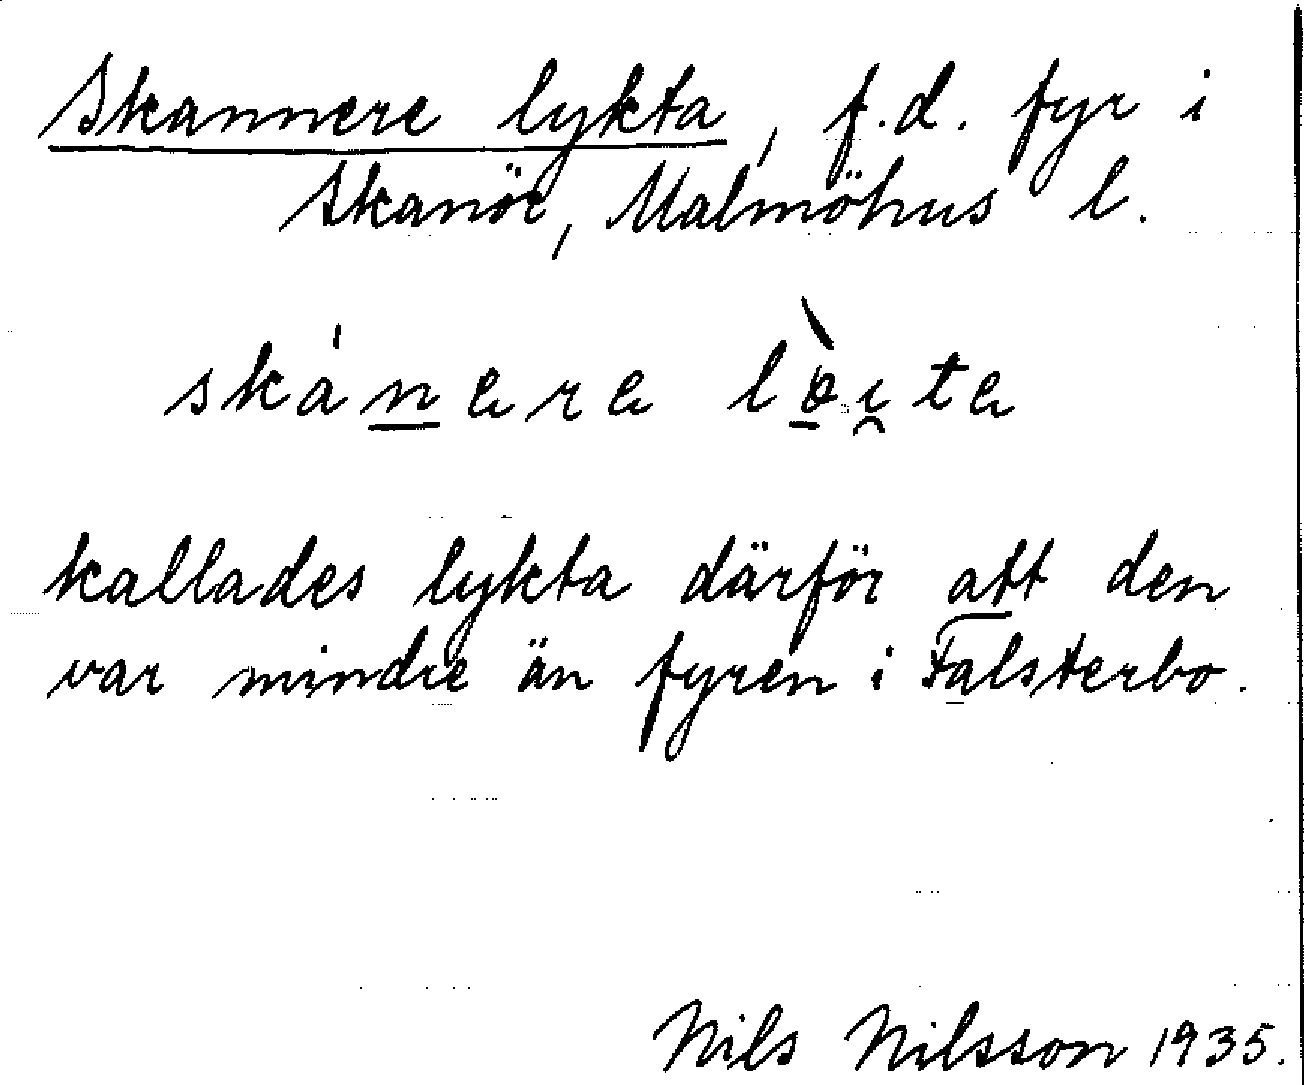 Skannere lykta, f.d. fyr i
Skanör, Malmöhus l.
skánere lòi̯te
kallades lykta därför att den
var mindre än fyren i Falsterbo.
Nils Nilsson 1935.